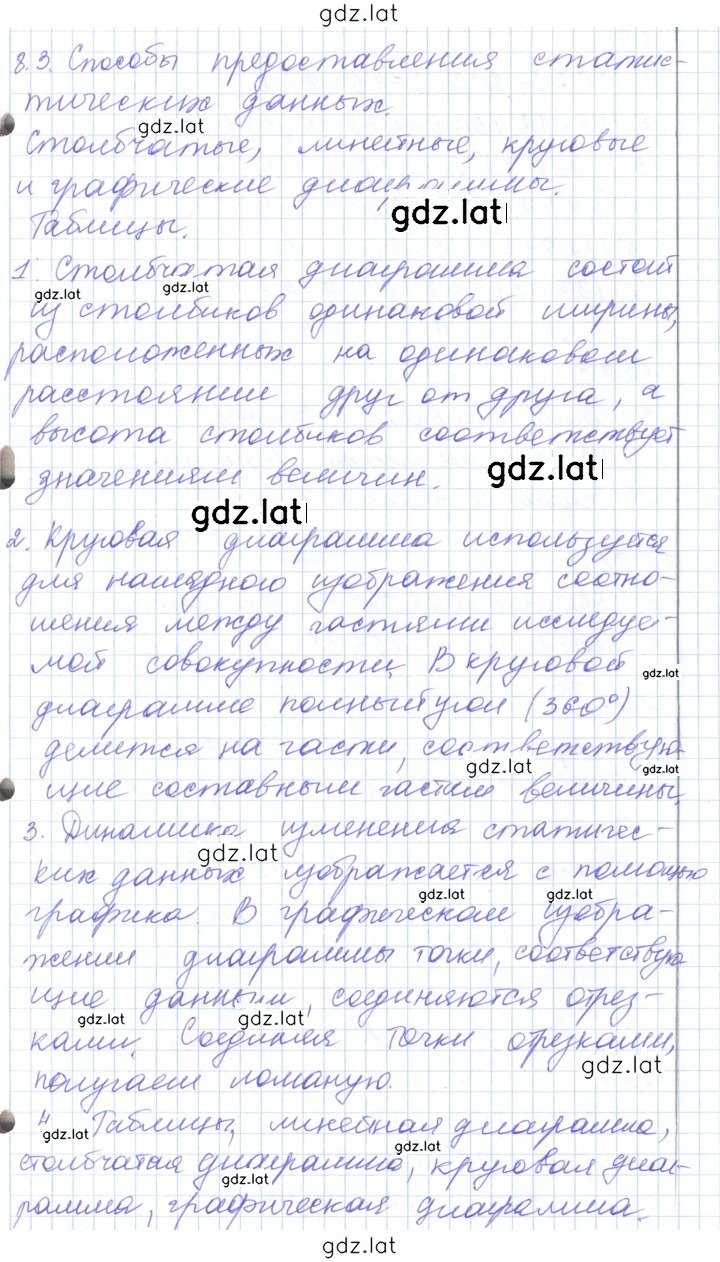 gdz.lat
8.3. Способы предоставления статис-
тических данных.
gdz.lat
Столбчатые, линейные, круговые
и графические диаграммы.
gdz.lat
Таблицы.
1. Столбчатая диаграмма состоит
gdz.lat gdz.lat
из столбиков одинаковой ширины,
расположенных на одинаковом
расстоянии друг от друга, а
высота столбиков соответствует
значениям величин.
gdz.lat
gdz.lat
2. Круговая диаграмма используется
для наглядного изображения соотно-
шения между частями исследуе-
мой совокупности. В круговой
gdz.lat
диаграмме полный угол (360°)
делится на части, соответствую-
gdz.lat gdz.lat
щие составным частям величины.
3. Динамика изменения статичес-
gdz.lat
ких данных изображается с помощью
gdz.lat gdz.lat
графика. В графическом изобра-
жении диаграммы точки, соответствую-
щие данным, соединяются отрез-
gdz.lat gdz.lat
ками. Соединяя точки отрезками,
gdz.lat
получаем ломаную.
4 Таблицы, линейная диаграмма,
gdz.lat gdz.lat
столбчатая диаграмма, круговая диаг-
gdz.lat
рамма, графическая диаграмма.
gdz.lat